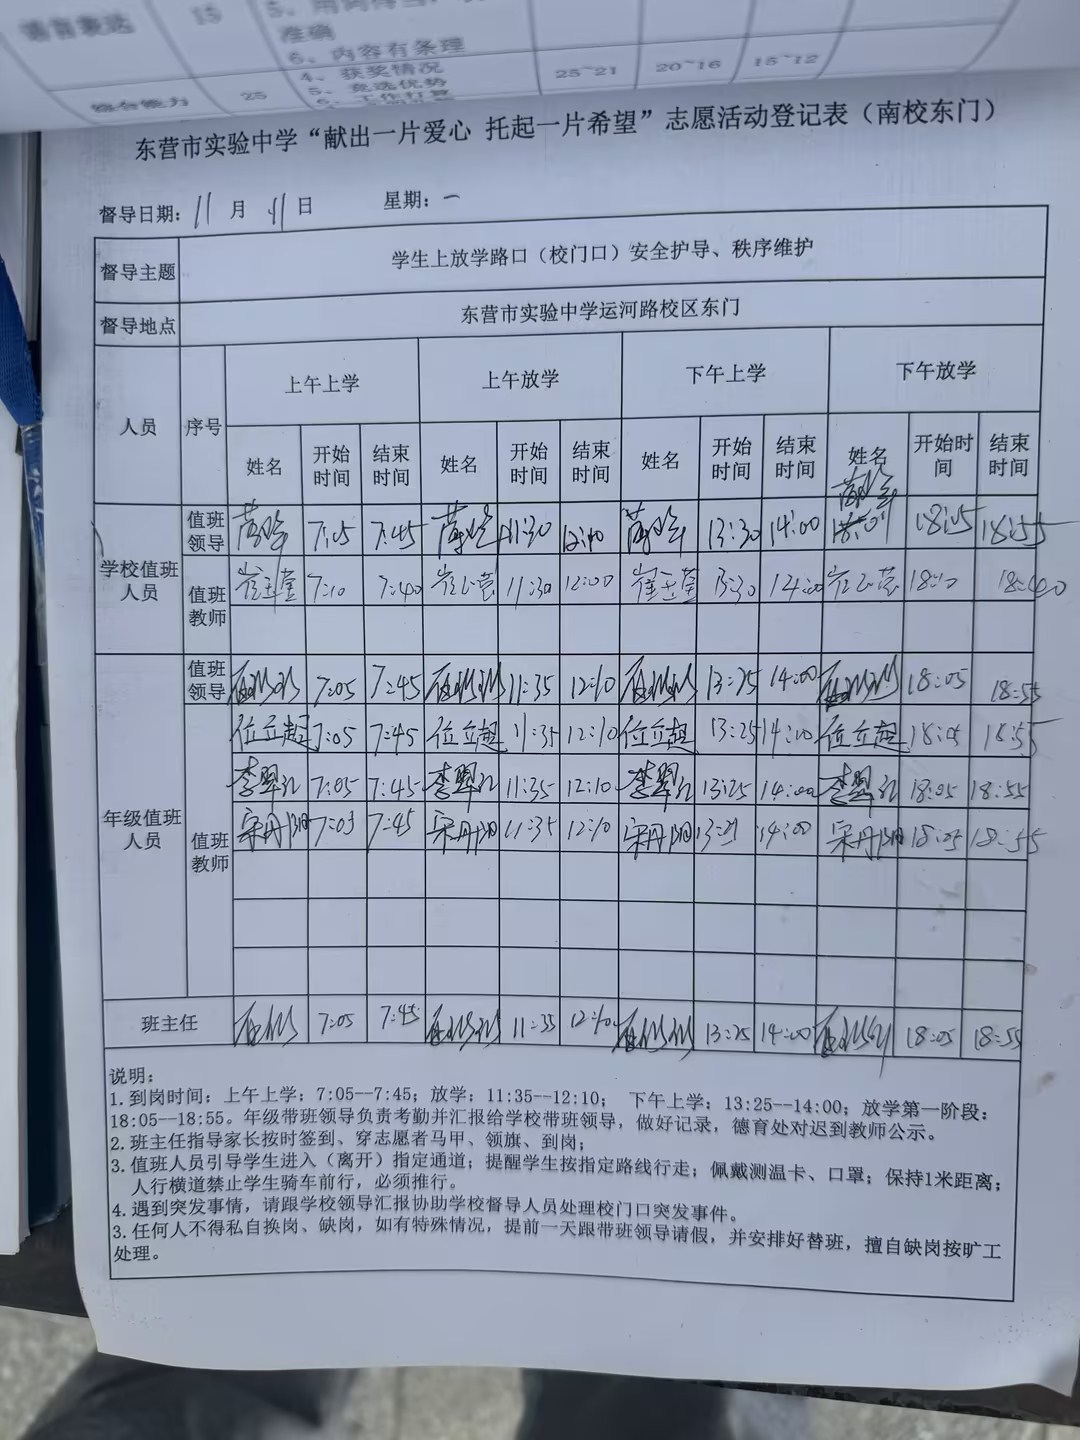 语言表达 15 5、用词得当,
准确
6、内容有条理
综合能力 25 4、获奖情况 25~21 20~16 15~12
5、竞选优势
6、工作打算
东营市实验中学“献出一片爱心 托起一片希望”志愿活动登记表（南校东门）
督导日期: 11 月 11 日 星期: 一
督导主题 学生上放学路口（校门口）安全护导、秩序维护
督导地点 东营市实验中学运河路校区东门
人员 序号 上午上学 上午放学 下午上学 下午放学
姓名 开始时间 结束时间 姓名 开始时间 结束时间 姓名 开始时间 结束时间 姓名 开始时间 结束时间
学校值班人员 值班领导 7:05 7:45 11:30 12:10 13:30 14:00 18:05 18:55
值班教师 7:10 7:40 11:30 12:00 13:30 14:00 18:10 18:40
年级值班人员 值班领导 7:05 7:45 11:35 12:10 13:25 14:00 18:05 18:55
值班教师 位立超 7:05 7:45 位立超 11:35 12:10 位立超 13:25 14:00 位立超 18:05 18:55
李翠红 7:05 7:45 李翠红 11:35 12:10 李翠红 13:25 14:00 李翠红 18:05 18:55
宋丹阳 7:05 7:45 宋丹阳 11:35 12:10 宋丹阳 13:25 14:00 宋丹阳 18:05 18:55
班主任 7:05 7:45 11:35 12:10 13:25 14:00 18:05 18:55
说明:
1.到岗时间: 上午上学: 7:05--7:45; 放学: 11:35--12:10; 下午上学: 13:25--14:00; 放学第一阶段:
18:05--18:55。年级带班领导负责考勤并汇报给学校带班领导, 做好记录, 德育处对迟到教师公示。
2. 班主任指导家长按时签到、穿志愿者马甲、领旗、到岗;
3. 值班人员引导学生进入（离开）指定通道; 提醒学生按指定路线行走; 佩戴测温卡、口罩; 保持1米距离;
人行横道禁止学生骑车前行, 必须推行。
4. 遇到突发事情, 请跟学校领导汇报协助学校督导人员处理校门口突发事件。
3. 任何人不得私自换岗、缺岗, 如有特殊情况, 提前一天跟带班领导请假, 并安排好替班, 擅自缺岗按旷工
处理。